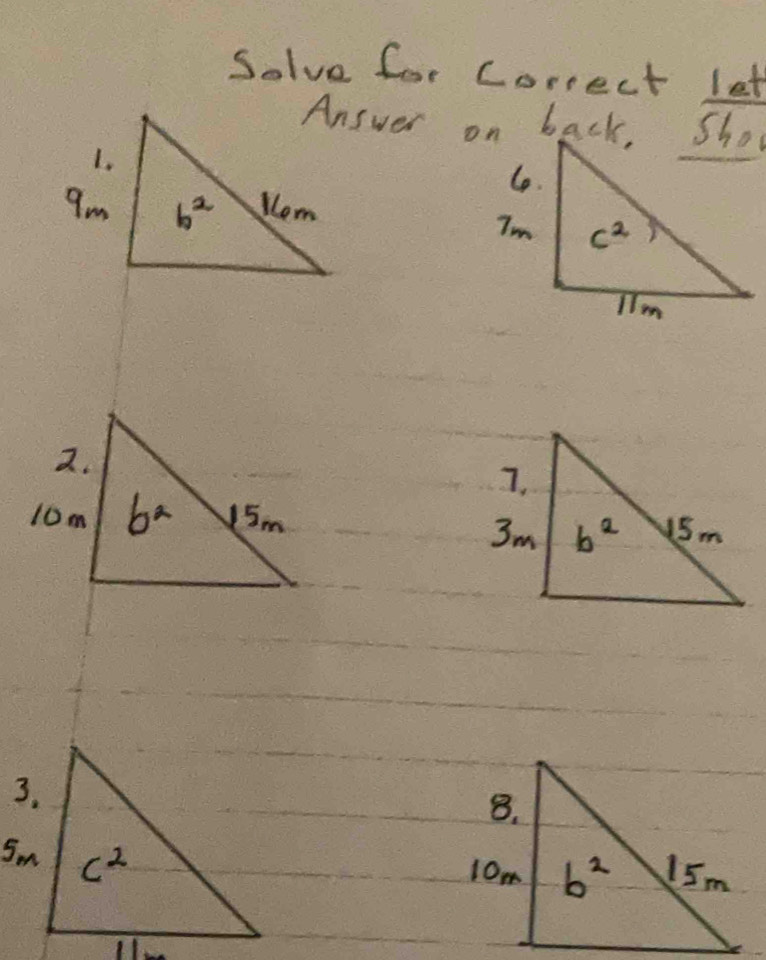 Solve for correct
Answer on back.
1.
9m b² 16m
6.
7m c²
11m
2.
10m b² 15m
7.
3m b² 15m
3.
5m c²
11m
8.
10m b² 15m